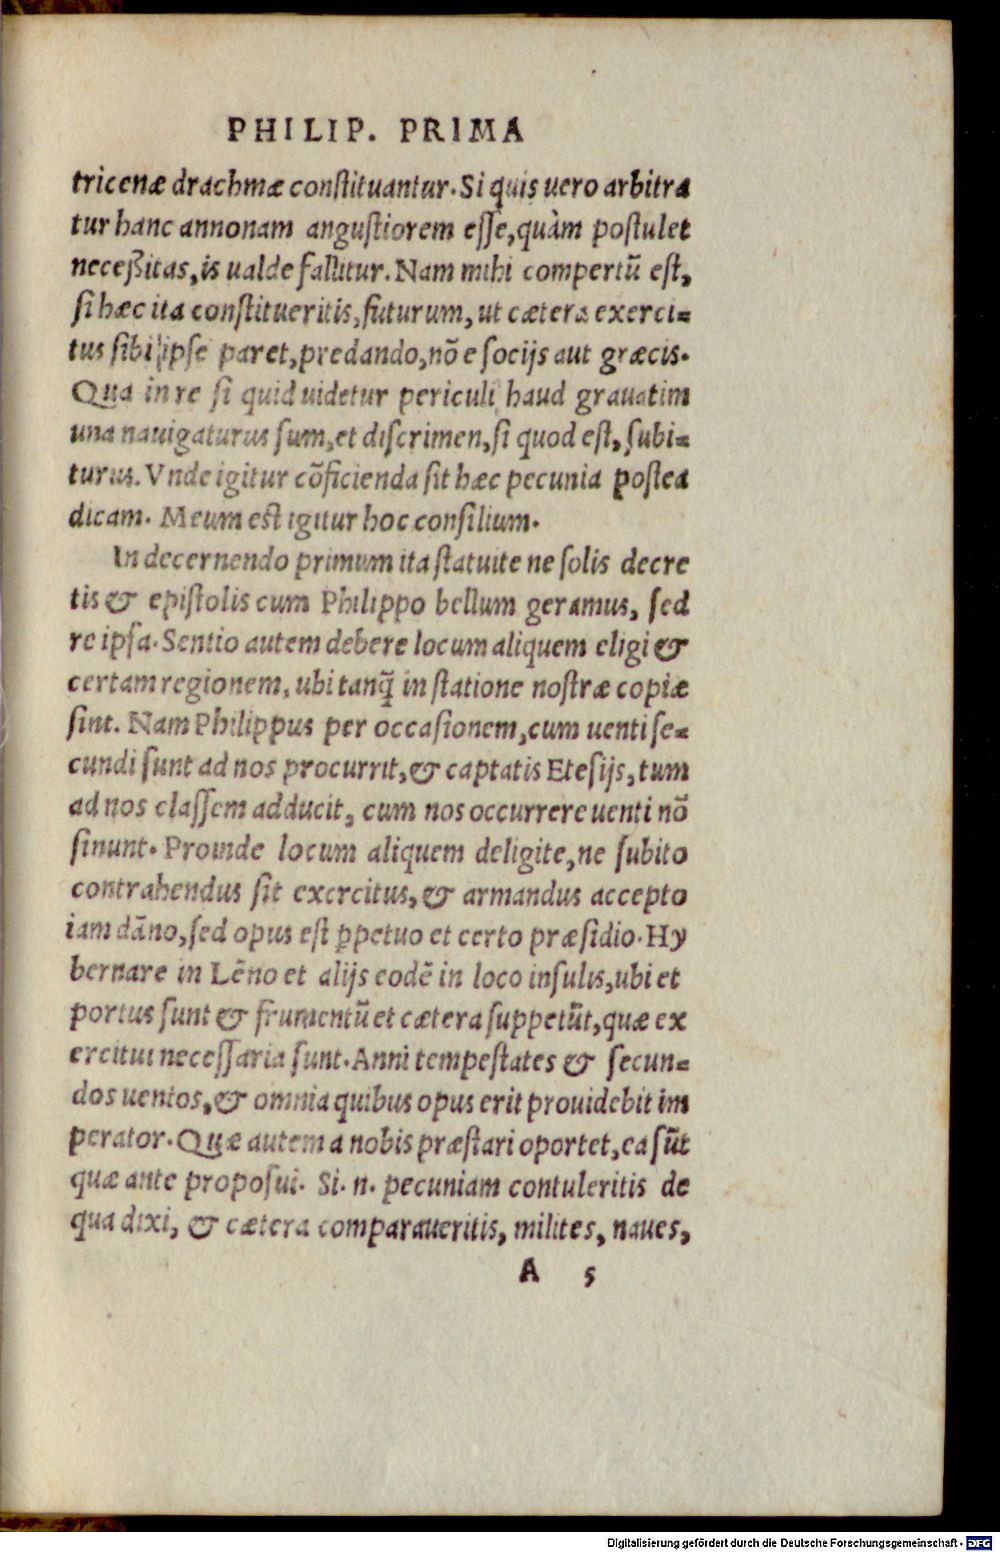 PHILIP. PRIMA
tricenæ drachmæ constituantur. Si quis uero arbitra
tur hanc annonam angustiorem esse, quàm postulet
neceßitas, is ualde fallitur. Nam mihi compertũ est,
si hæc ita constitueritis, futurum, ut cætera exerci=
tus sibi ipse paret, predando, nõ e socijs aut græcis.
Qua in re si quid uidetur periculi haud grauatim
una nauigaturus sum, et discrimen, si quod est, subi=
turus. Vnde igitur cõficienda sit hæc pecunia postea
dicam. Meum est igitur hoc consilium.
In decernendo primum ita statuite ne solis decre
tis & epistolis cum Philippo bellum geramus, sed
re ipsa. Sentio autem debere locum aliquem eligi &
certam regionem, ubi tanq̃ in statione nostræ copiæ
sint. Nam Philippus per occasionem, cum uenti se=
cundi sunt ad nos procurrit, & captatis Etesijs, tum
ad nos classem adducit, cum nos occurrere uenti nõ
sinunt. Proinde locum aliquem deligite, ne subito
contrahendus sit exercitus, & armandus accepto
iam dãno, sed opus est ꝑpetuo et certo præsidio. Hy
bernare in Lẽno et alijs eodẽ in loco insulis, ubi et
portus sunt & frumentũ et cætera suppetũt, quæ ex
ercitui necessaria sunt. Anni tempestates & secun=
dos uentos, & omnia quibus opus erit prouidebit im
perator. Quæ autem a nobis præstari oportet, ea sũt
quæ ante proposui. Si. n. pecuniam contuleritis de
qua dixi, & cætera comparaueritis, milites, naues,
A 5
Digitalisierung gefördert durch die Deutsche Forschungsgemeinschaft - DFG